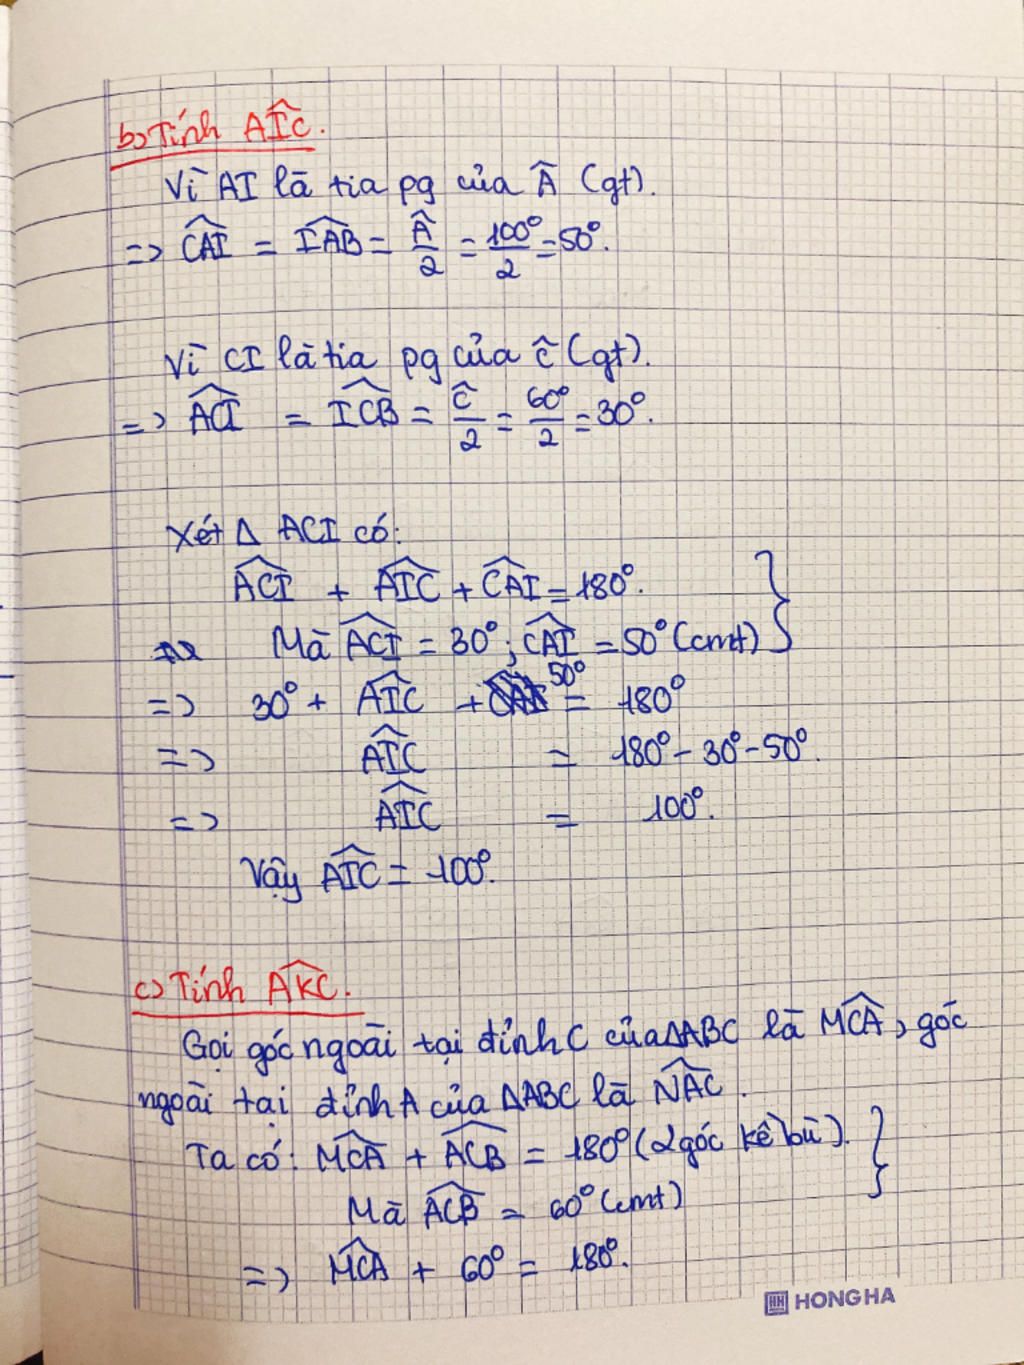 b) Tính AIC.
Vì AI là tia pg của Â (gt).
=> CAI = IAB = Â/2 = 100°/2 = 50°.
Vì CI là tia pg của Ĉ (gt).
=> ACI = ICB = Ĉ/2 = 60°/2 = 30°.
Xét Δ ACI có:
ACI + AIC + CAI = 180°.
Mà ACI = 30°; CAI = 50° (cmt)
=> 30° + AIC + 50° = 180°
=> AIC = 180° - 30° - 50°.
=> AIC = 100°.
Vậy AIC = 100°.
c) Tính AKC.
Gọi góc ngoài tại đỉnh C của ΔABC là MCA, góc
ngoài tại đỉnh A của ΔABC là NAC.
Ta có: MCA + ACB = 180° (2 góc kề bù).
Mà ACB = 60° (cmt)
=> MCA + 60° = 180°.
HH HONG HA